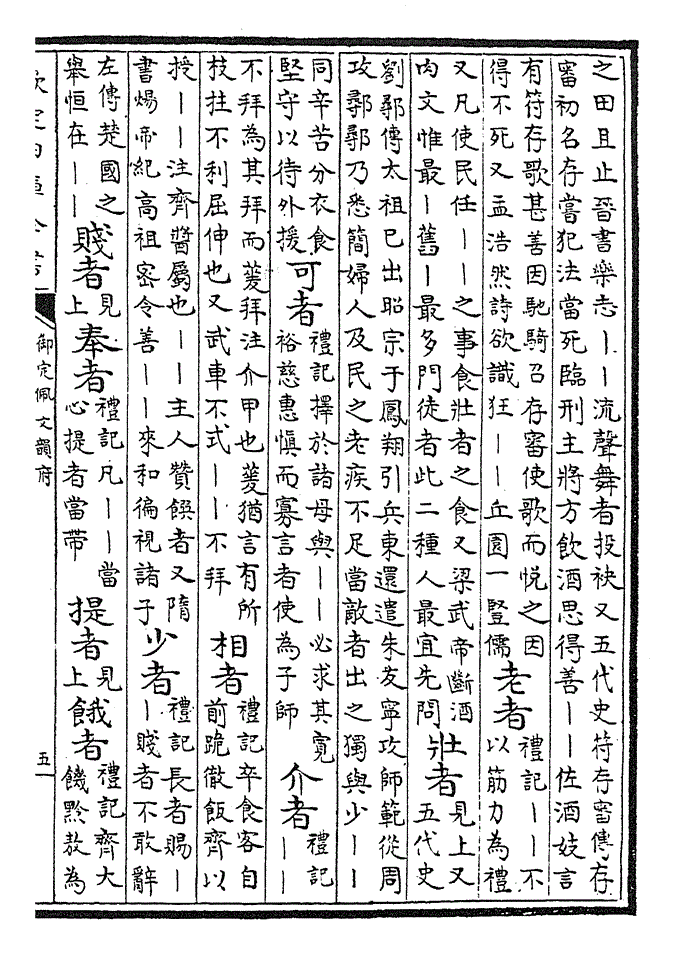 之田且止晉書樂志丨丨流聲舞者投袂又五代史符存審傳存
審初名存嘗犯法當死臨刑主將方飲酒思得善丨丨佐酒妓言
有符存歌甚善因馳騎召存審使歌而悅之因
得不死又孟浩然詩欲識狂丨丨丘園一豎儒
老者
禮記丨丨不
以筋力為禮
又凡使民任丨丨之事食壯者之食又梁武帝斷酒
肉文惟最丨舊丨最多門徒者此二種人最宜先問
壯者
見上又
五代史
劉鄩傳太祖已出昭宗于鳳翔引兵東還遣朱友寧攻師範從周
攻鄩鄩乃悉簡婦人及民之老疾不足當敵者出之獨與少丨丨
同辛苦分衣食
堅守以待外援
可者
禮記擇於諸母與丨丨必求其寬
裕慈惠慎而寡言者使為子師
介者
禮記
丨丨
不拜為其拜而蓌拜注介甲也蓌猶言有所
枝拄不利屈伸也又武車不式丨丨不拜
相者
禮記卒食客自
前跪徹飯齊以
授丨丨注齊醬屬也丨丨主人贊饌者又隋
書煬帝紀高祖密令善丨丨來和徧視諸子
少者
禮記長者賜丨
丨賤者不敢辭
左傳楚國之
舉恒在丨丨
賤者
見上
奉者
禮記凡丨丨當
心提者當帶
提者
見上
餓者
禮記齊大
饑黔敖為
御定佩文韻府
五